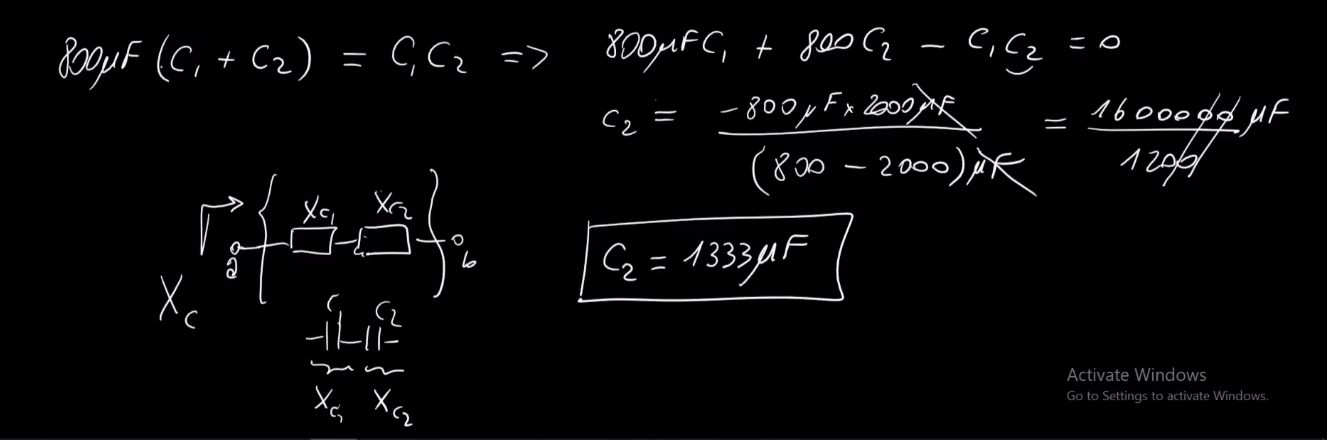 800μF (C₁ + C₂) = C₁C₂ => 800μFC₁ + 800C₂ - C₁C₂ = 0
C₂ = -800μF x 2000μF / (800 - 2000)μF = 16000000μF / 1200
C₂ = 1333μF
Xc₁ Xc₂
a b
Xc
C₁ C₂
Xc₁ Xc₂
Activate Windows
Go to Settings to activate Windows.